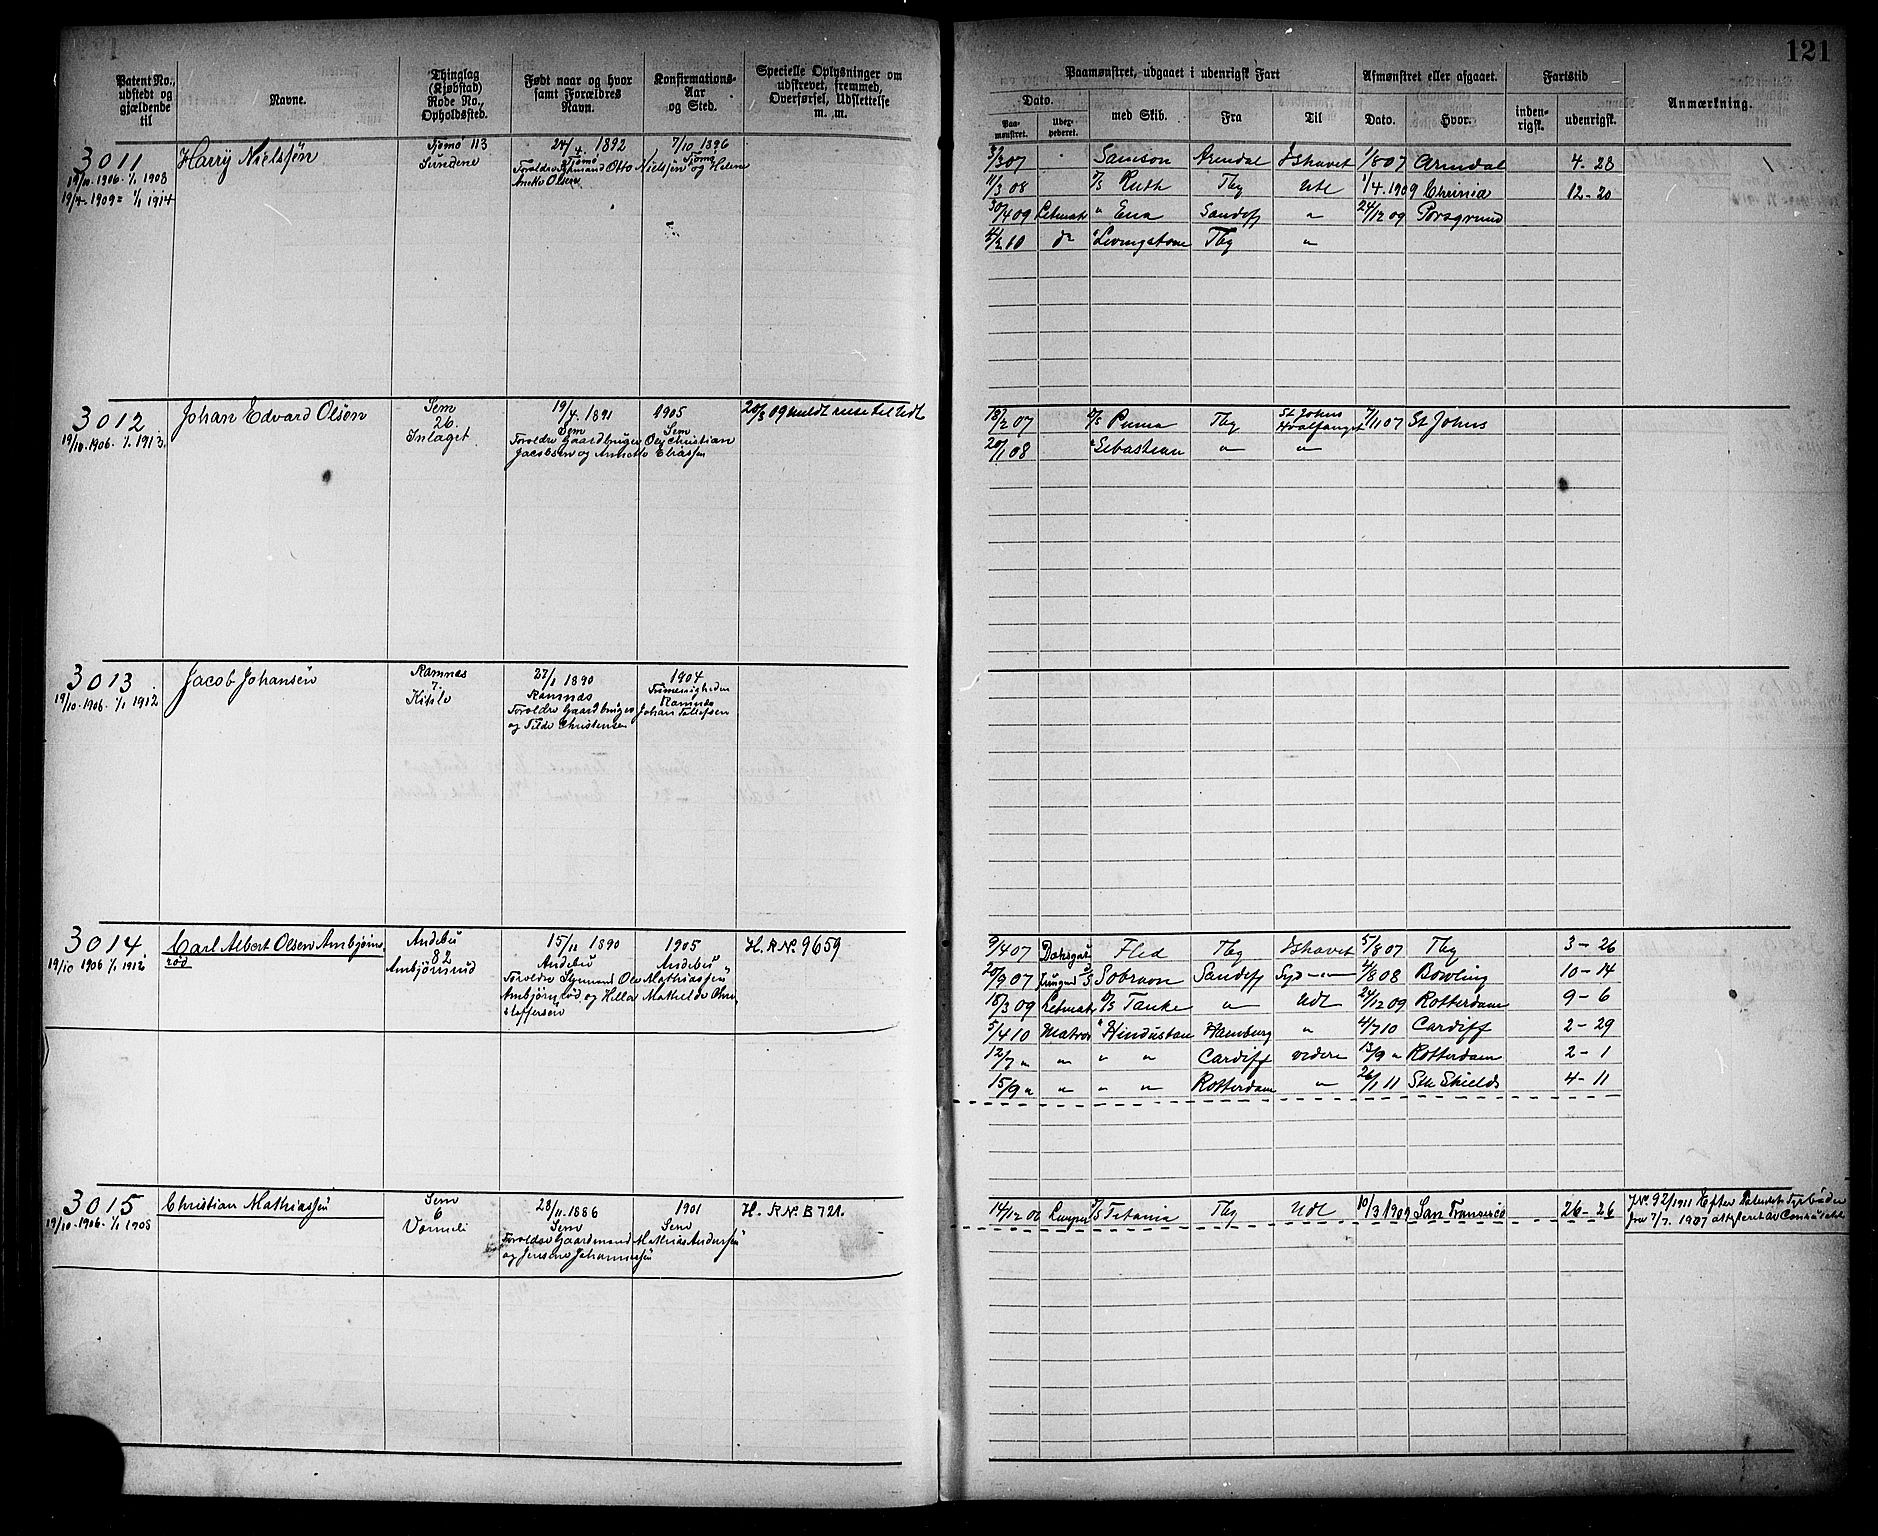 121
Patent No., udstedt og gjældende til
Navne.
Thinglag (Kjøbstad) Rode No., Opholdssted.
Født naar og hvor samt Forældres Navn.
Konfirmations-Aar og Sted.
Specielle Oplysninger om udskrevet, fremmed, Overførsel, Udslettelse m. m.
Paamønstret, udgaaet i udenrigsk Fart
Afmønstret eller afgaaet.
Fartstid
Anmærkning.
Dato.
med Skib.
Fra
Til
Dato.
Hvor.
inden-rigsk.
udenrigsk.
Paa-mønstret.
3011
Harry Nielsen
Tjømø 113
Sundene
24/4. 1892
Tjømø
7/10 1896
Tjømø
19/10. 1906. 1/1 1908
19/4. 1909 = 1/1 1914
Forældre Otto Nielsen og Helene
Olsen
07 Samson Arendal Ishavet 1/8 07 Arendal 4-28
11/3 08 Ruth Tbg Udl 1/4. 1909 12-20
30/4 09 Letmatr " Ena Sandefj " 24/12 09 Porsgrund
4/2 10 do " Livingstone Tbg "
3012
Johan Edvard Olsen
Sem
26
19/4. 1891
Sem
1905
Sem
20/3 09 meldt reise til Udl
19/10. 1906. 1/1 1913.
Forældre Gaardbruger Ole Christian
Jacobsen og Annette Eliassen
18/2 07 Puma Tbg St Johns Hvalfangst 7/1 07 St Johns
20/1 08 " Sebastian " "
3013
Jacob Johansen
Ramnæs
7.
27/1 1890
Ramnæs
1904
Ramnæs
19/10. 1906. 1/1 1912
Forældre Gaardbruger Johan Tollefsen
og Tilde Christensen
3014
Carl Albert Olsen Ambjørns
rød
Andebu
82
15/11 1890
Andebu
1905
Andebu
H. R No. 9659
19/10 1906 1/1 1912
Forældre Ole Mathiassen
Ambjørnsrød og Mathilde Chri
stoffersen
9/4 07 Tbg Ishavet 5/8 07 Tbg 3-26
20/9 07 Sobraon Sandefj Syd-"- 4/8 08 Bowling 10-14
18/3 09 Letmatr Tanke " Udl 24/12 09 Rotterdam 9-6
5/4 10 Matros " Hindustan Hamburg " 4/7 10 Cardiff 2-29
12/7 " " " " Cardiff videre 13/9 " Rotterdam 2-1
15/9 " " " " Rotterdam " 26/1 11 Sth Shields 4-11
3015
Christian Mathiassen
Sem
6
28/11. 1886
Sem
1901
Sem
H. R No. B 721.
19/10. 1906. 1/1 1908
Forældre Gaardmand Mathias Andersen
og Johannessen
14/12 06 Titania Tbg Udl 10/3 1909 San Fransisco 26-26
J. No. 92/1911 Efter
7/7. 1907 attesteret av Consulatet